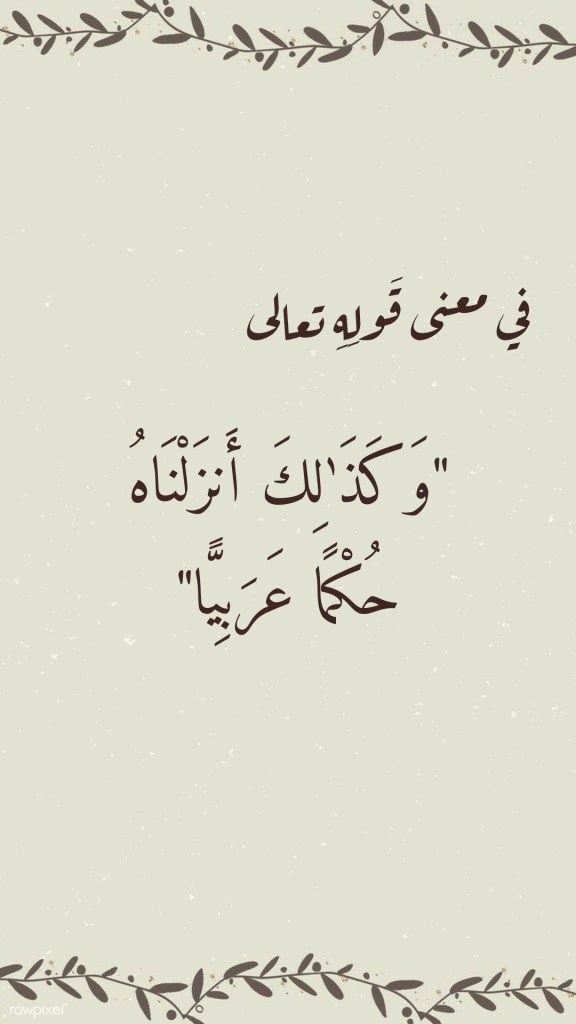 في معنى قَولِهِ تعالى
"وَكَذَٰلِكَ أَنزَلْنَاهُ
حُكْمًا عَرَبِيًّا"
rawpixel